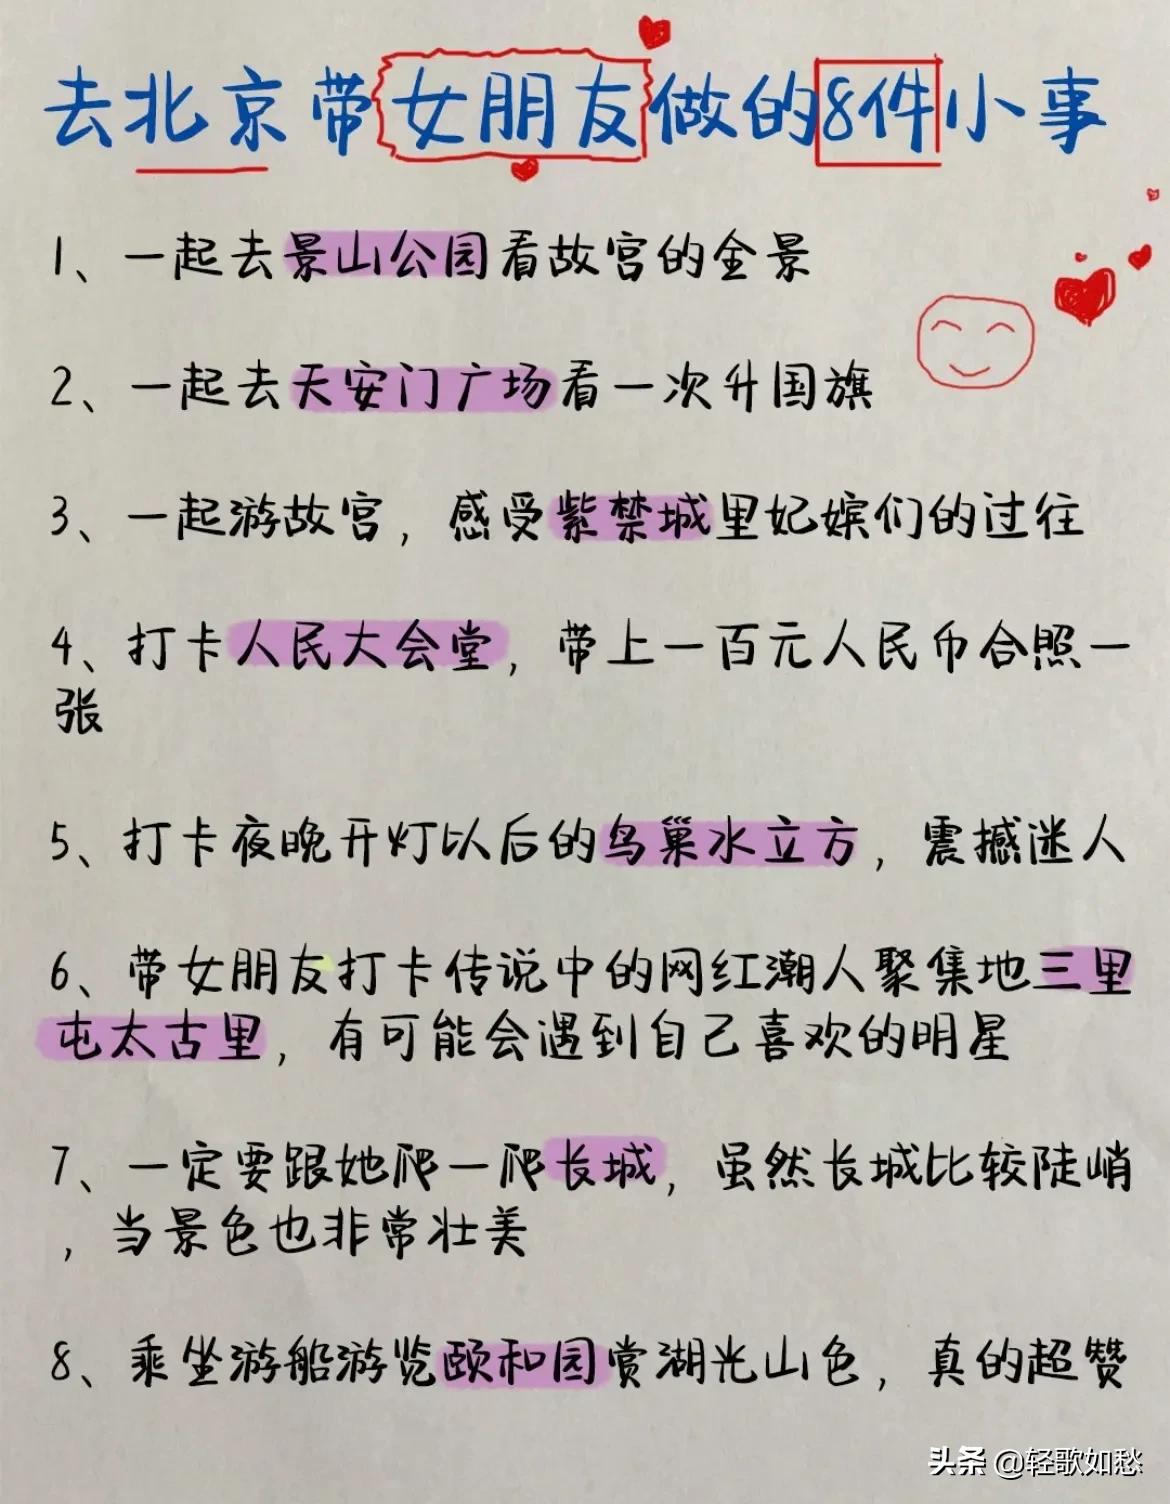 去北京带女朋友做的8件小事
1、一起去景山公园看故宫的全景
2、一起去天安门广场看一次升国旗
3、一起游故宫，感受紫禁城里妃嫔们的过往
4、打卡人民大会堂，带上一百元人民币合照一
张
5、打卡夜晚开灯以后的鸟巢水立方，震撼迷人
6、带女朋友打卡传说中的网红潮人聚集地三里
屯太古里，有可能会遇到自己喜欢的明星
7、一定要跟她爬一爬长城，虽然长城比较陡峭
，当景色也非常壮美
8、乘坐游船游览颐和园赏湖光山色，真的超赞
头条 @轻歌如愁